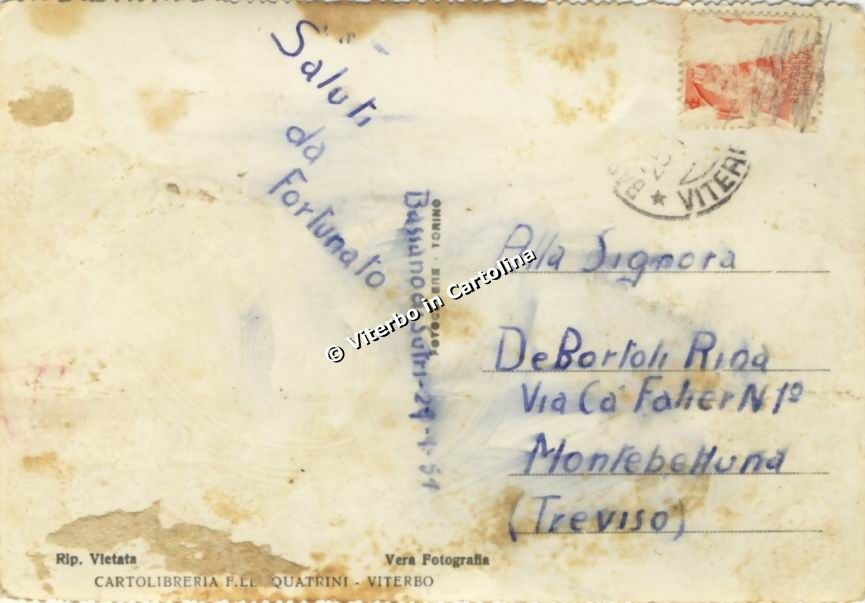 Saluti
da
Fortunato
Bassano di Sutri - 29-4-61
FOTOCELERE - TORINO
© Viterbo in Cartolina
VITER
Alla Signora
De Bortoli Rina
Via Ca' Falier N 1º
Montebelluna
(Treviso)
Rip. Vietata
Vera Fotografia
CARTOLIBRERIA F.LL QUATRINI - VITERBO